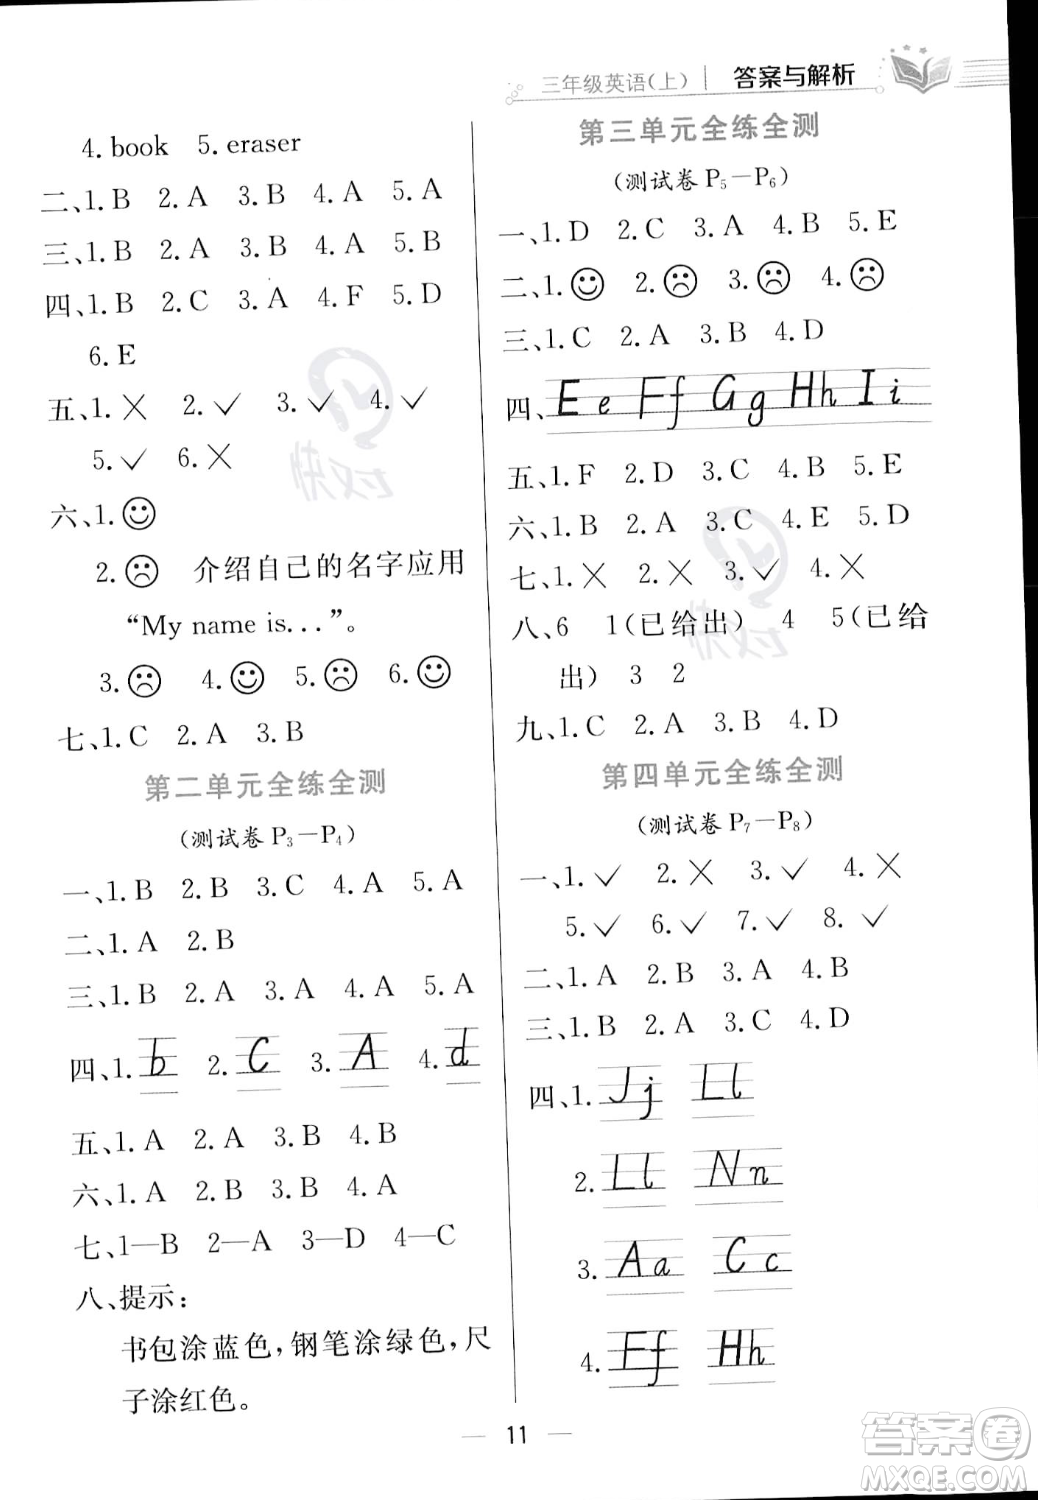 三年级英语(上) 答案与解析
4. book 5. eraser
二、1. B 2. A 3. B 4. A 5. A
三、1. B 2. A 3. B 4. A 5. B
四、1. B 2. C 3. A 4. F 5. D
6. E
五、1. ✕ 2. ✓ 3. ✓ 4. ✓
5. ✓ 6. ✕
六、1. ☺
2. ☹ 介绍自己的名字应用
“My name is...”。
3. ☹ 4. ☺ 5. ☹ 6. ☺
七、1. C 2. A 3. B
第二单元全练全测
(测试卷 P3—P4)
一、1. B 2. B 3. C 4. A 5. A
二、1. A 2. B
三、1. B 2. A 3. A 4. A 5. A
四、1. b 2. C 3. A 4. d
五、1. A 2. A 3. B 4. B
六、1. A 2. B 3. B 4. A
七、1—B 2—A 3—D 4—C
八、提示:
书包涂蓝色,钢笔涂绿色,尺
子涂红色。
第三单元全练全测
(测试卷 P5—P6)
一、1. D 2. C 3. A 4. B 5. E
二、1. ☺ 2. ☹ 3. ☹ 4. ☹
三、1. C 2. A 3. B 4. D
四、Ee Ff Gg Hh Ii
五、1. F 2. D 3. C 4. B 5. E
六、1. B 2. A 3. C 4. E 5. D
七、1. ✕ 2. ✕ 3. ✓ 4. ✕
八、6 1(已给出) 4 5(已给
出) 3 2
九、1. C 2. A 3. B 4. D
第四单元全练全测
(测试卷 P7—P8)
一、1. ✓ 2. ✕ 3. ✓ 4. ✕
5. ✓ 6. ✓ 7. ✓ 8. ✓
二、1. A 2. B 3. A 4. B
三、1. B 2. A 3. C 4. D
四、1. Jj Ll
2. Ll Nn
3. Aa Cc
4. Ff Hh
11
答案圈
MXQE.COM